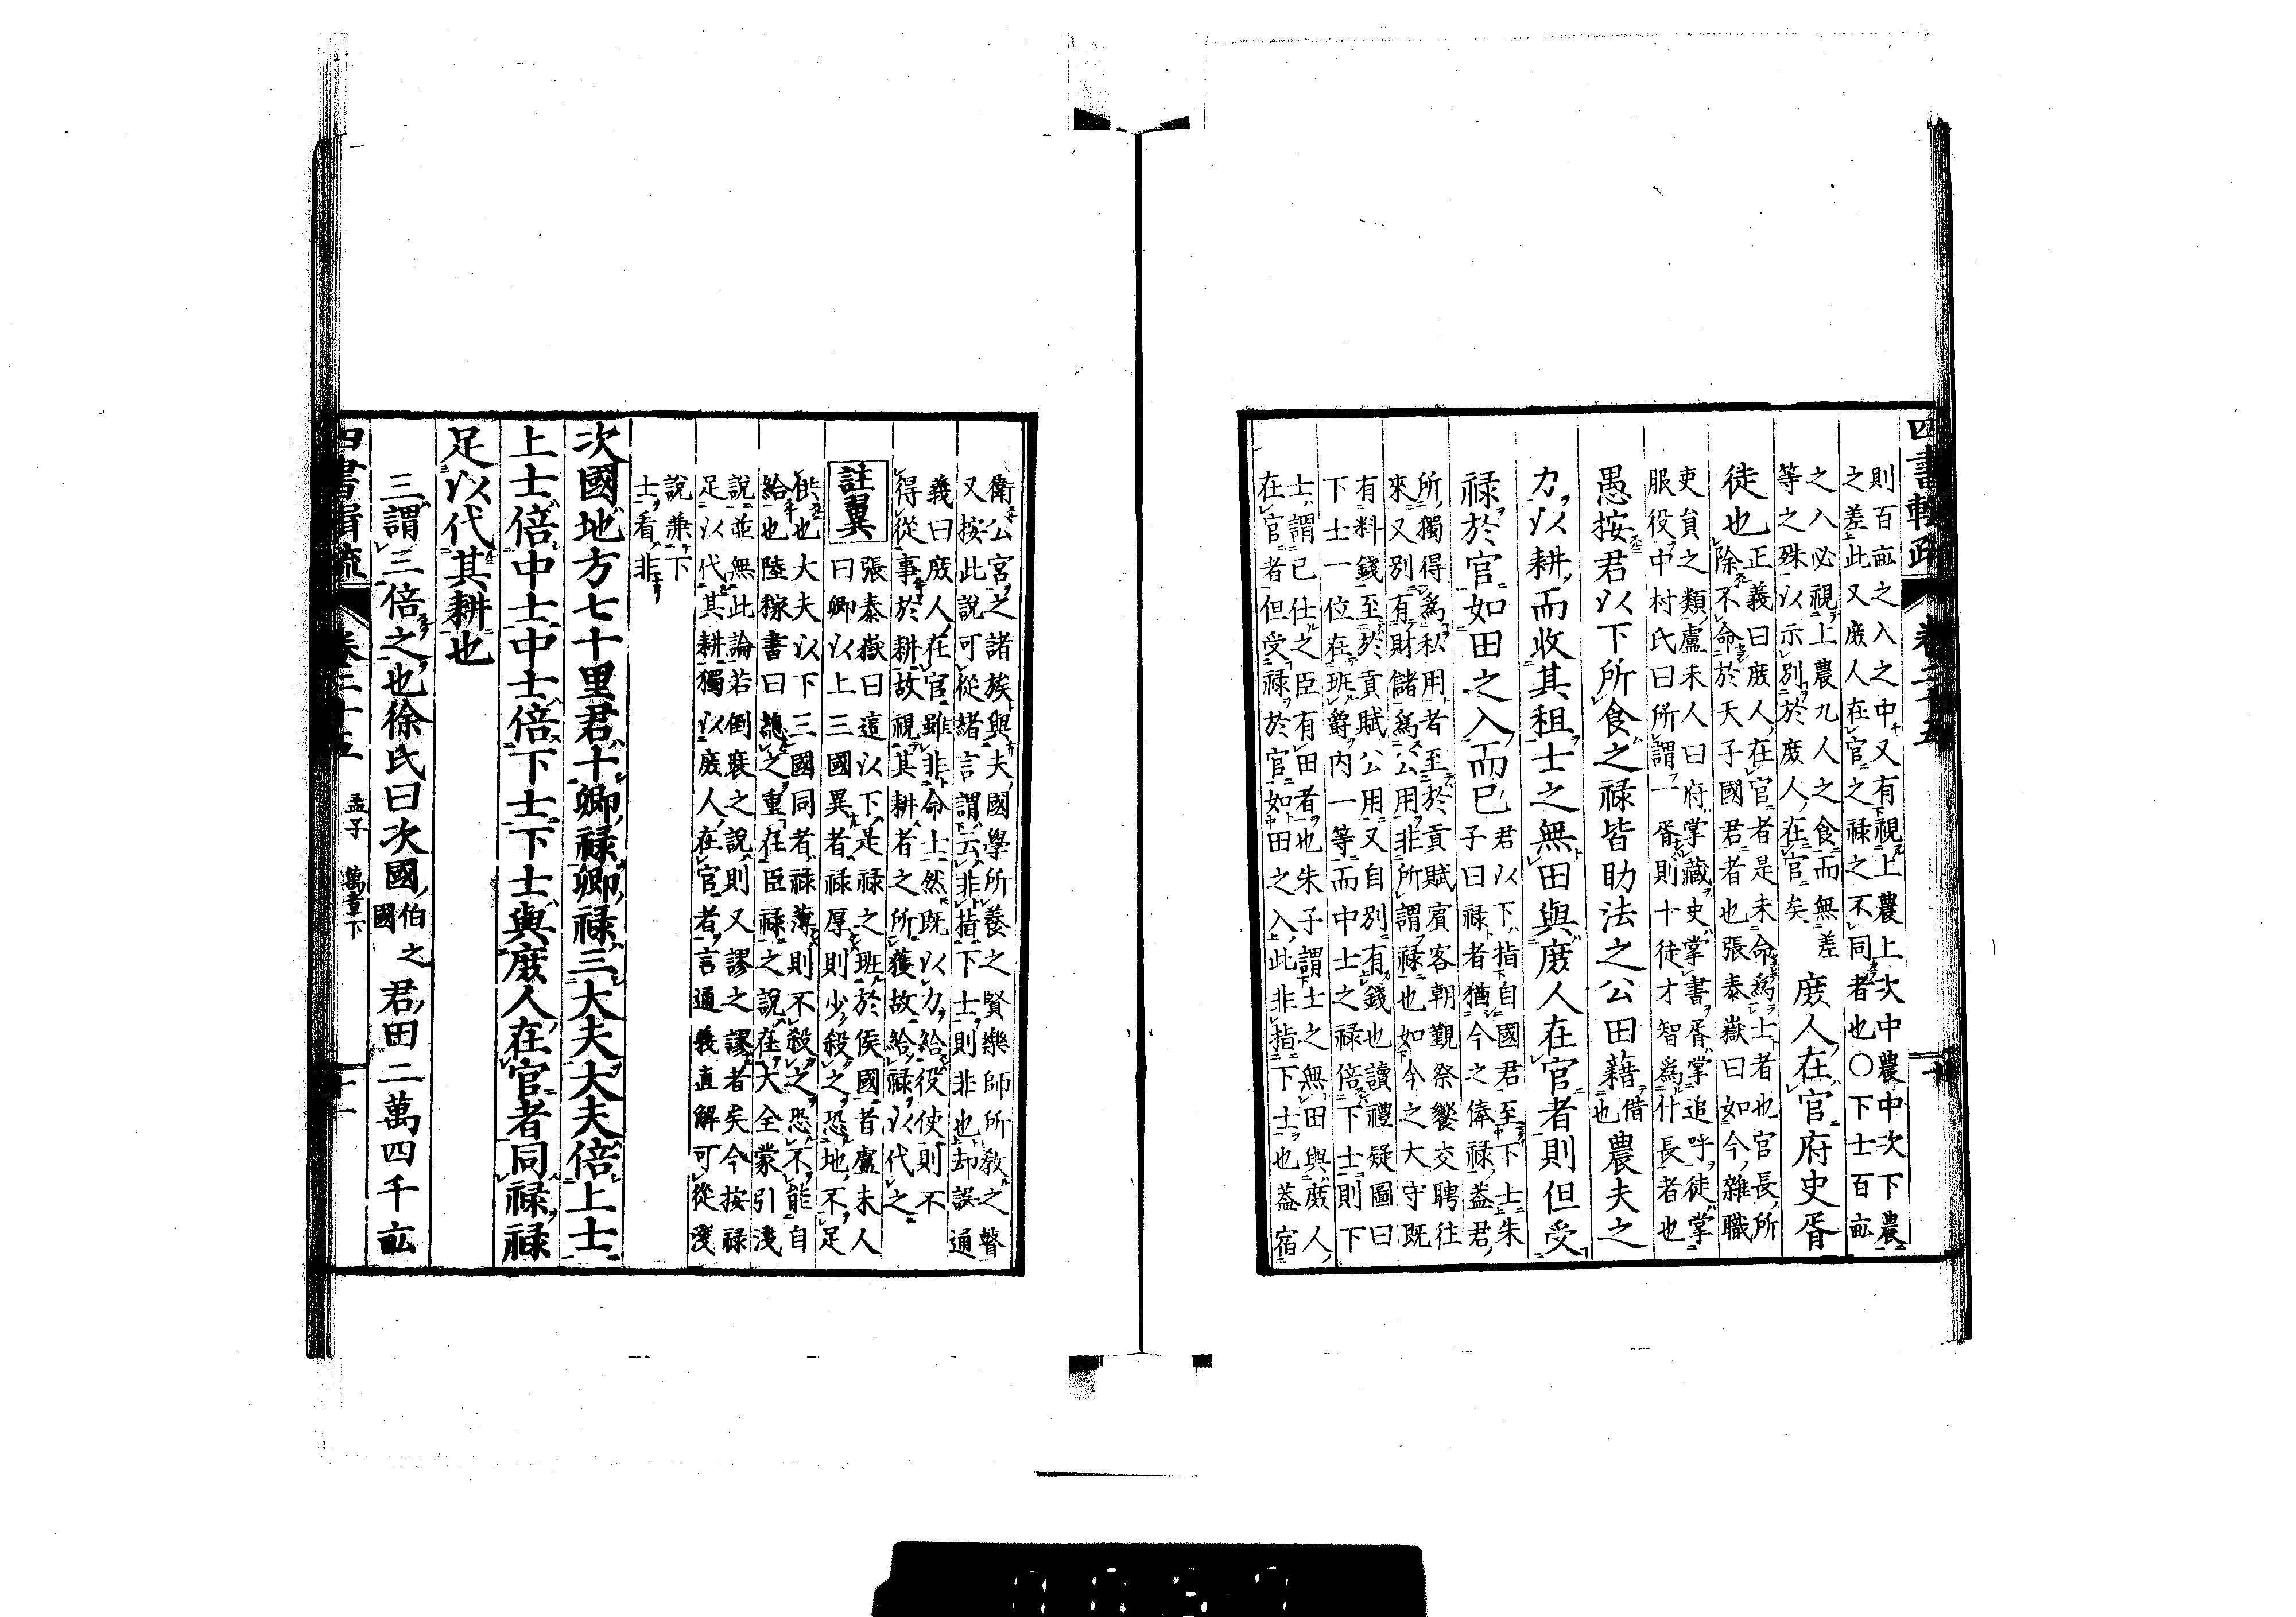 四書輯疏 卷二十五
則百畝之入之中又有視上農上次中農中次下農
之差此又庶人在官之禄之不同者也○下士百畝
之入必視上農九人之食而無差
等之殊以示別於庶人在官矣
庶人在官府史胥
徒也
正義曰庶人在官者是未命爲士者也官長所
除不命於天子國君者也張泰嶽曰如今雜職
吏貟之類盧未人曰府掌藏史掌書胥掌追呼徒掌
服役中村氏曰所謂一胥則十徒才智爲什長者也
愚按君以下所食之禄皆助法之公田藉
借
也
農夫之
力以耕而收其租士之無田與庶人在官者則但受
禄於官如田之入而已
君以下指自國君至下士朱
子曰禄者猶今之俸禄蓋君
所獨得爲私用者至於貢賦賔客朝覲祭饗交聘往
來又別有財儲爲公用非所謂禄也如今之大守既
有料錢至於貢賦公用又自別有錢也讀禮疑圖曰
下士一位在班爵内一等而中士之禄倍下士則下
士謂已仕之臣有田者也朱子謂士之無田與庶人
在官者但受禄於官如田之入此非指下士也葢宿
衛公宮之諸族與夫國學所養之賢樂師所教之瞽
又按此説可從緒言謂云非指下士則非也却誤通
義曰庶人在官雖非命士然既以力給役使則不
得從事於耕故視其耕者之所獲故給禄以代之
註翼
張泰嶽曰這以下是禄之班於侯國者盧未人
曰卿以上三國異者禄厚則少殺之恐地不足
供也大夫以下三國同者禄薄則不殺之恐不能自
給也陸稼書曰總之重在臣禄之説在大全蒙引淺
説並無此論若倒裝之説則又謬之謬者矣今按禄
足以代其耕獨以庶人在官者言通義直解可從淺
説兼下
士看非
次國地方七十里君十卿禄卿禄三大夫大夫倍上士
上士倍中士中士倍下士下士與庶人在官者同禄禄
足以代其耕也
三謂三倍之也徐氏曰次國
伯之
國
君田二萬四千畝
四書輯疏 卷二十五 孟子 萬章下